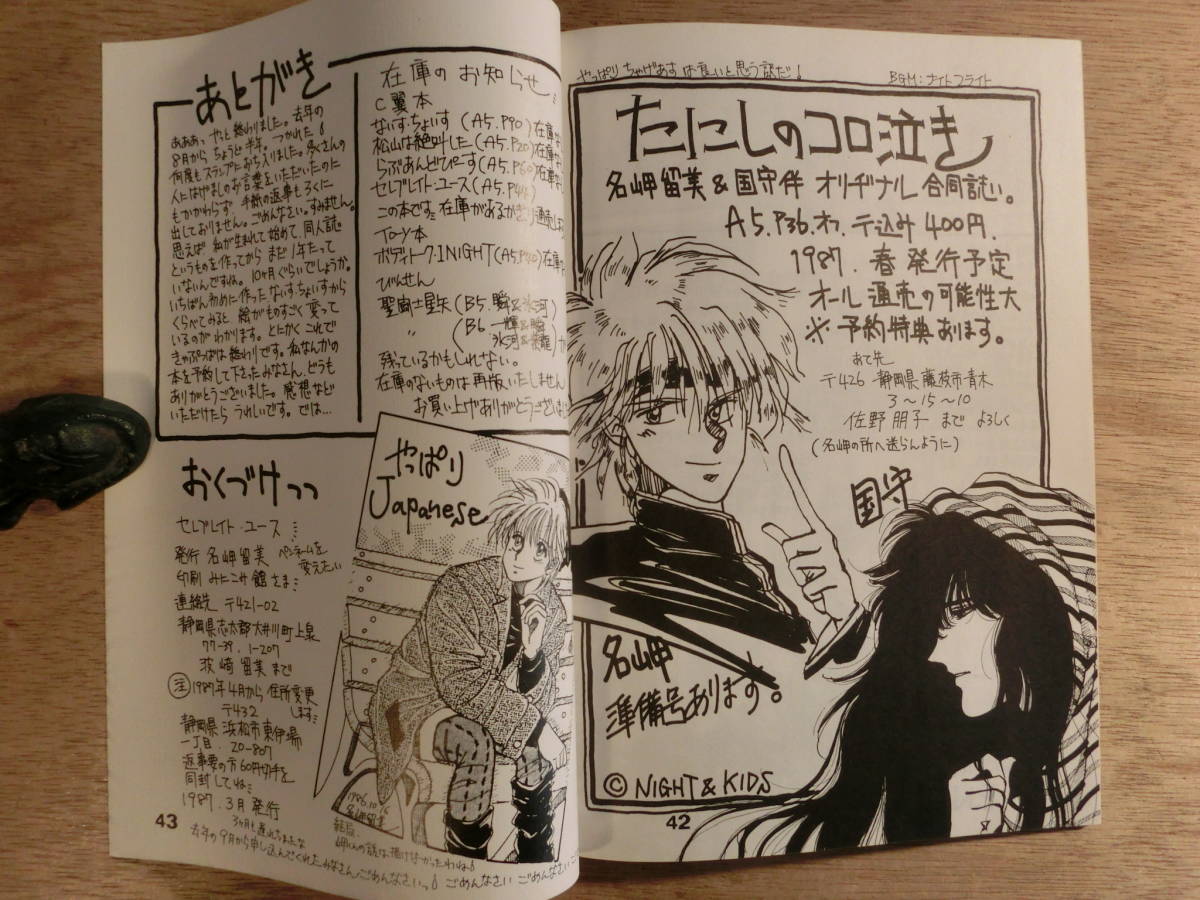 やっぱり ちゃげあす は良いと思う訳だ！
BGM：ナイトフライト
たにしのコロ泣き
名岬留美 & 国守伴 オリヂナル 合同誌い。
A5.P36.オフ.〒込み 400円.
1987. 春 発行予定
オール 通売の可能性大
※ 予約特典あります。
あて先
〒426 静岡県藤枝市青木
3〜15〜10
佐野 朋子 まで よろしく
(名岬の所へ送らんように)
国守
名岬
準備号あります。
© NIGHT & KIDS
42
あとがき
ああぁっ やっと終わりました。去年の
8月から ちょうど半年。つかれた！
何度もスランプにおち入りました。多くさんの
人にはげましのお言葉をいただいたのに
もかかわらず 手紙の返事もろくに
出しておりません。ごめんなさい。すみません。
思えば 私が生まれて始めて、同人誌
というものを作ってから まだ1年たって
いないんですね。10ヶ月ぐらいでしょうか。
いちばん初めに作った ないす・ちょいすから
くらべてみると 絵がものすごく変って
いるのが わかります。とにかく これで
きゃぷつばは終わりです。私なんかの
本を予約して下さったみなさん、どうも
ありがとうございました。感想など
いただけたら うれしいです。では…
在庫の お知らせ
C翼本
ないす・ちょいす (A5.P90) 在庫
松山は絶叫した (A5.P20) 在庫
らぶあんどぴーす (A5.P60) 在庫
セレブレイト・ユース (A5.P44)
この本です。在庫があるかぎり通売します
To-y本
ボディトーク・1NIGHT (A5.P40) 在庫
びんせん
聖闘士星矢 (B5. 瞬&氷河)
〃 (B6 一輝&瞬 氷河&紫龍) が
残っているかもしれない。
在庫のないものは再版いたしません
お買い上げありがとうございま
おくづけっっ
セレブレイト・ユース
発行 名岬留美 ペンネームを変えたい
印刷 みにこみ館さま
連絡先 〒421-02
静岡県志太郡大井川町上泉
77-39. 1-207
波崎 留美 まで
注 1987年4月から 住所変更します
〒432
静岡県 浜松市東伊場
一丁目. 20-807
返事要の方 60円切手を
同封してね
1987. 3月 発行
3ヶ月も遅れちまったな
やっぱり
Japanese
1986.10
名岬留美
結局、
岬くんの話は描けなかったわね
43
去年の9月から申し込んでくれたみなさん ごめんなさいっ ごめんなさい ごめんなさい ご